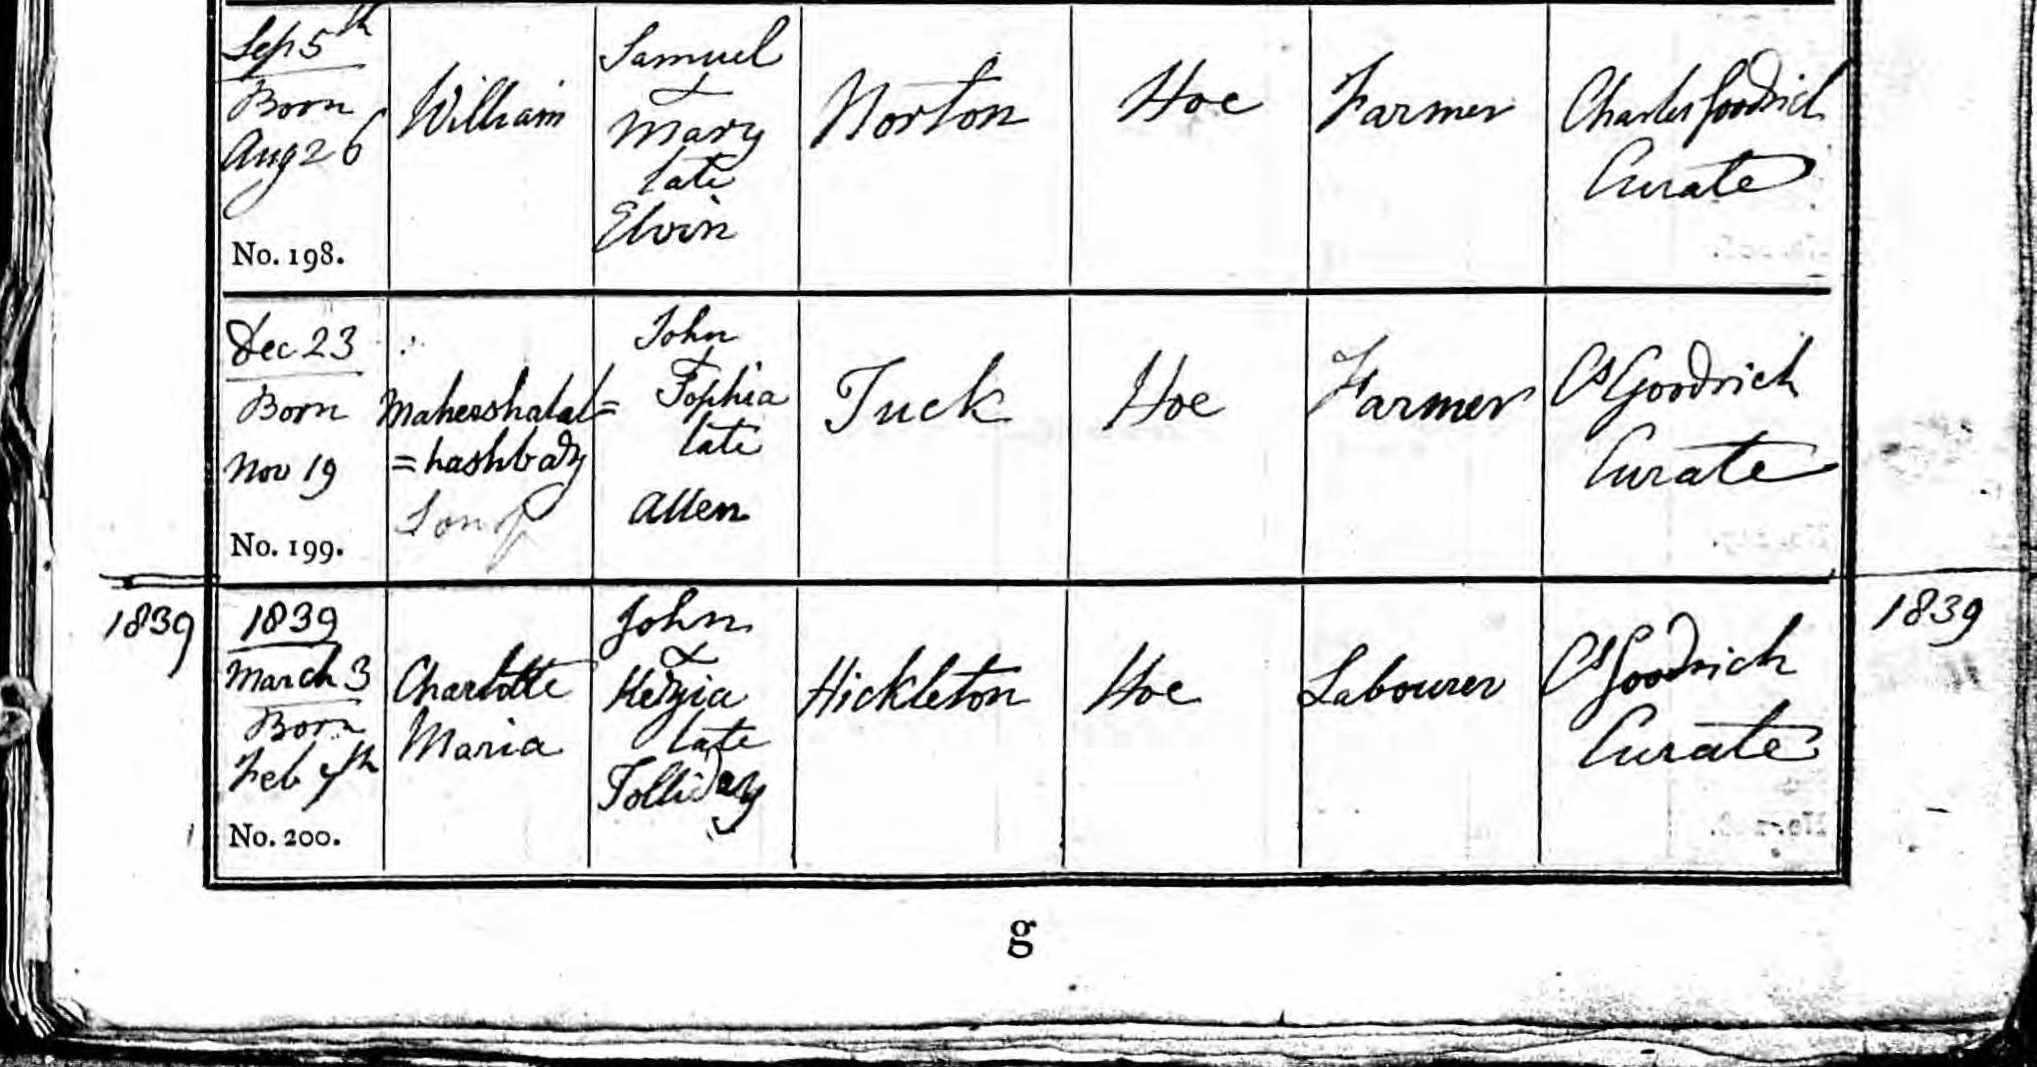 Sep 5th
Born
Aug 26
No. 198.
William
Samuel
&
Mary
late
Elvin
Norton
Hoe
Farmer
Charles Goodrich
Curate
Dec 23
Born
Nov 19
No. 199.
Mahershalal=
=hashbaz
Son of
John
&
Sophia
late
Allen
Tuck
Hoe
Farmer
Cs Goodrich
Curate
1839
1839
March 3
Born
Feb 7th
No. 200.
Charlotte
Maria
John
&
Kezia
late
Tolliday
Hickleton
Hoe
Labourer
Cs Goodrich
Curate
1839
g